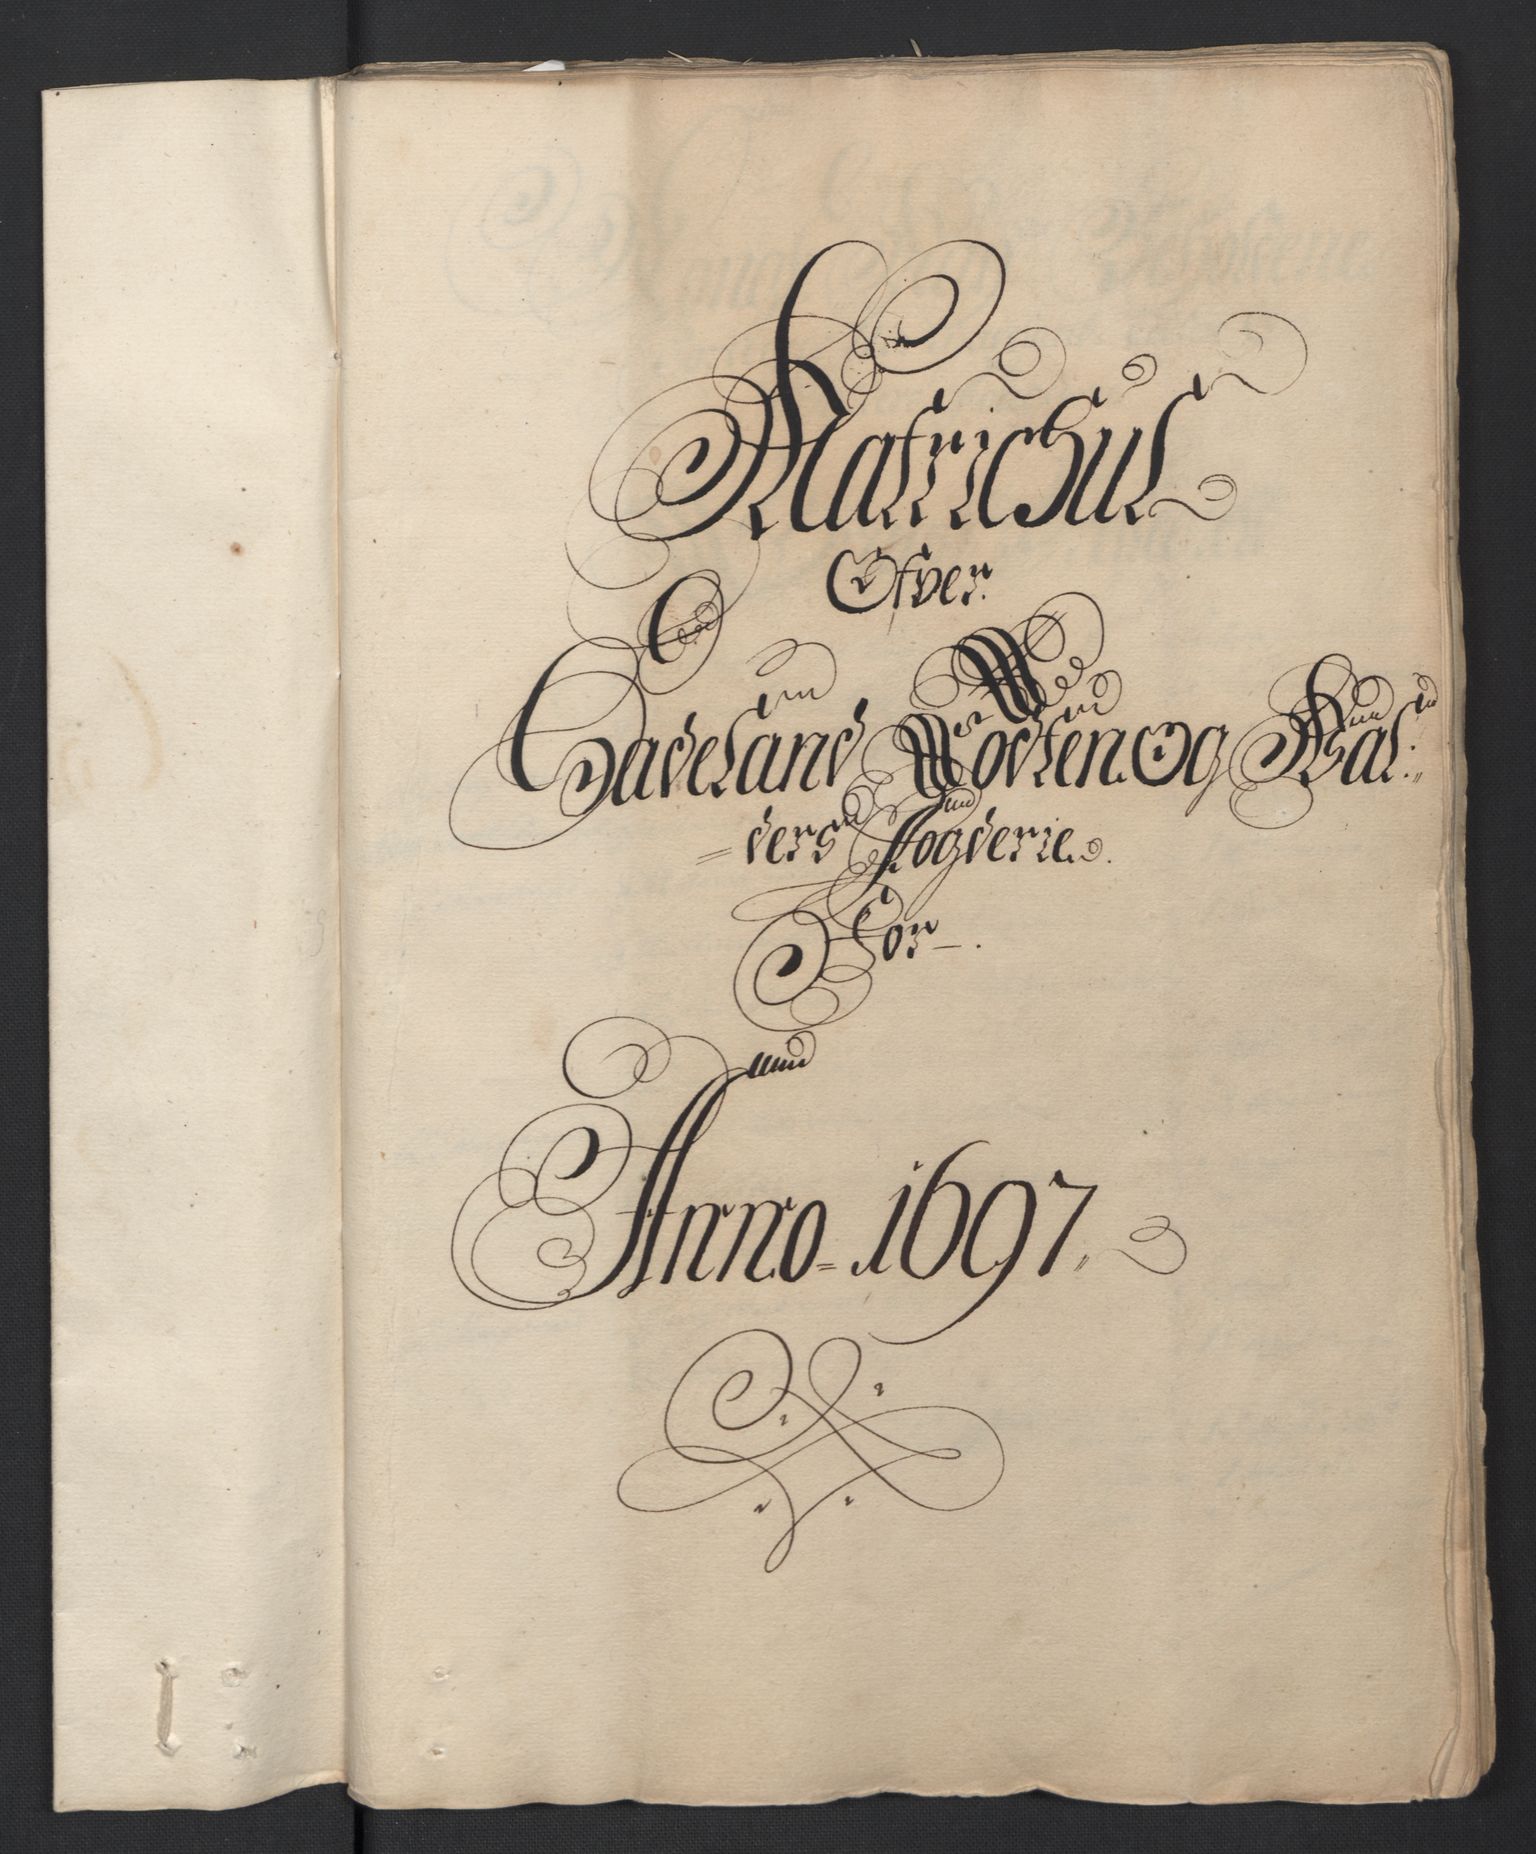 Matrichul
Ofver
Hadeland Todten Og Val=
=ders Fogderie.
For
Anno 1697.